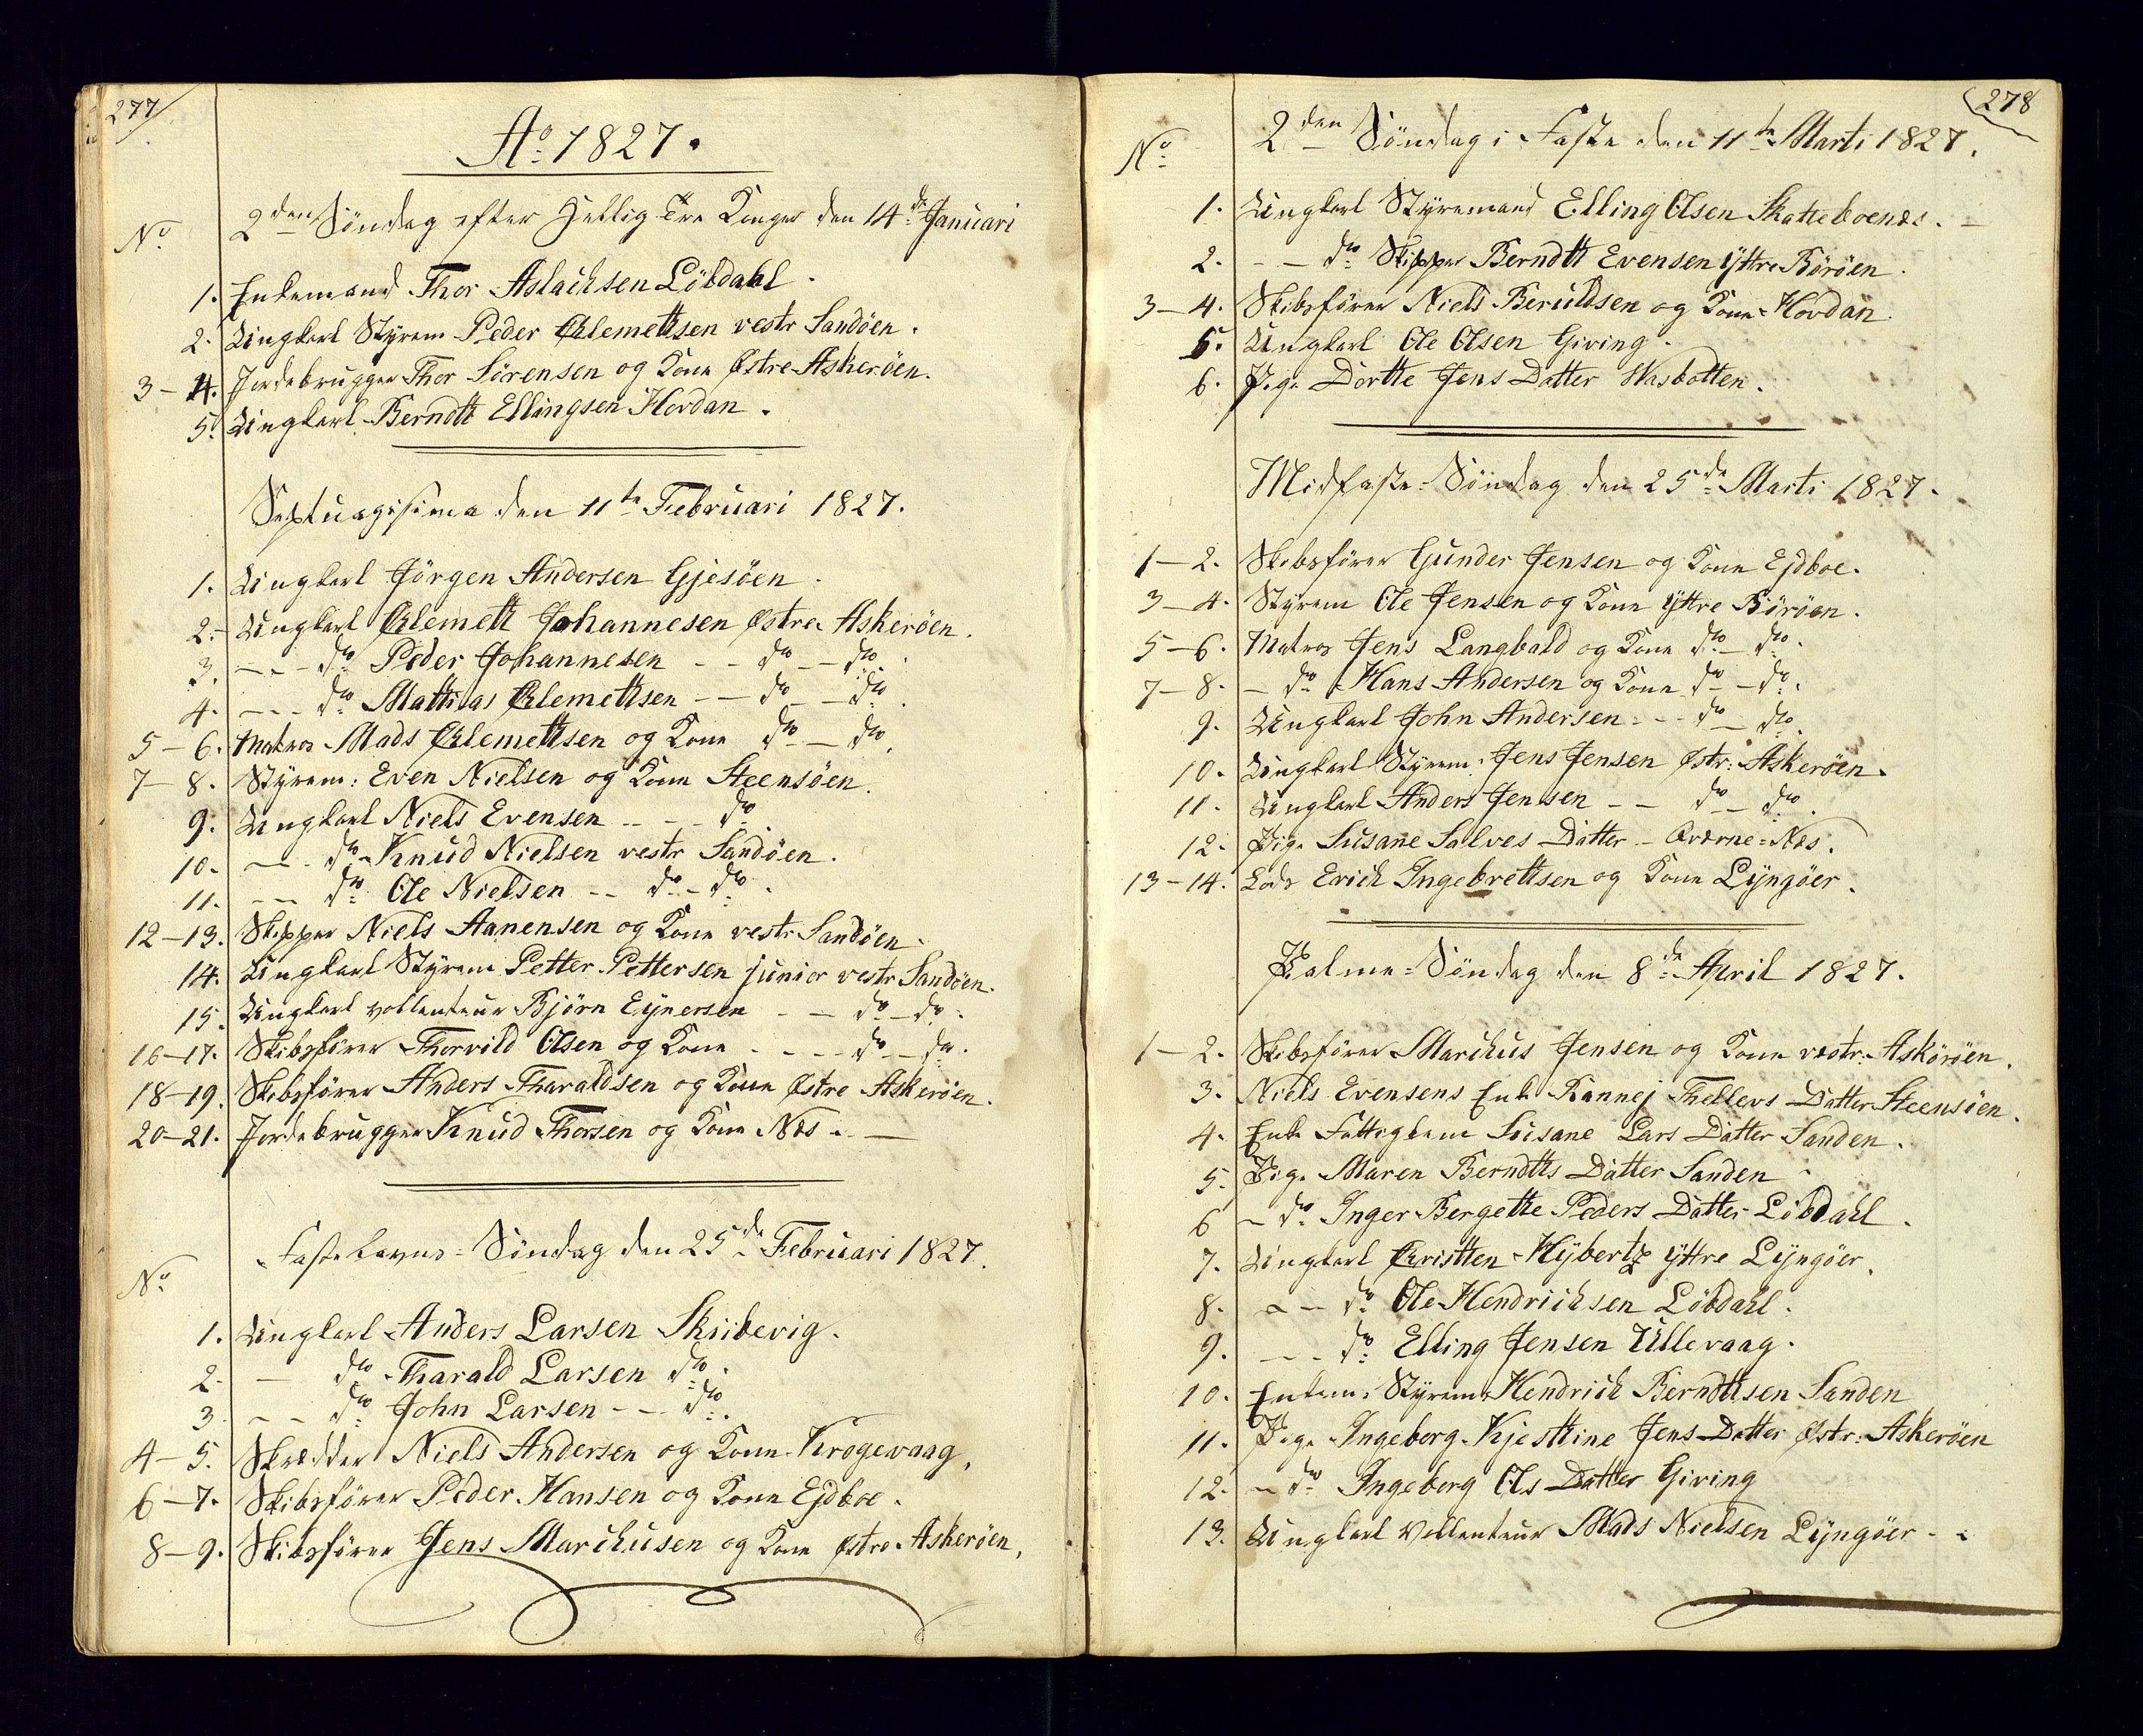 277
Ao 1827.
No 2den Söndag efter Hellig Tre Konger den 14de Januari
1. Enkemand Thor Aslachsen Löbdahl.
2. Ungkarl Styrem Peder Chlemettsen vestr Sandöen.
3-4. Jordebrugger Thor Sörensen og Kone Østre Askeröen.
5. Ungkarl Berndtt Ellingsen Hovdan.
Septuagisima den 11te Februari 1827.
1. Ungkarl Jörgen Andersen Gjesöen.
2. Ungkarl Chlemett Johannesen Østre Askeröen.
3. --- do Peder Johannesen -- do -- do.
4. --- do Mattias Chlemettsen -- do -- do.
5-6. Matros Mads Chlemettsen og Kone do - do.
7-8. Styrem: Even Nielsen og Kone Steensöen.
9. Ungkarl Niels Evensen --- do
10. -- do Knud Nielsen vestr Sandöen.
11. -- do Ole Nielsen -- do - do.
12-13. Skipper Niels Aanensen og Kone vestr Sandöen.
14. Ungkarl Styrem Petter Pettersen junior vestr Sandöen.
15. Ungkarl vollenteur Bjørn Eynersen -- do - do.
16-17. Skibsförer Thorvild Olsen og Kone ---- do - do.
18-19. Skibsförer Anders Tharaldsen og Kone Østre Askeröen.
20-21. Jordebrugger Knud Thorsen og Kone Næs. -
No Fastelavns-Söndag den 25de Februari 1827.
1. Ungkarl Anders Larsen Skiibevig.
2. - do Tharald Larsen do.
3. -- do John Larsen --- do.
4-5. Skrædder Niels Andersen og Kone Krogevaag,
6-7. Skibsförer Peder Hansen og Kone Ejdboe.
8-9. Skibsförer Jens Marchusen og Kone Østre Askeröen,
278
No 2den Söndag i Faste den 11te Marti 1827.
1. Ungkarl Styremand Elling Olsen Skatteboenæs. -
2. -- do Skipper Berndtt Evensen Yttre Böröen.
3-4. Skibsförer Niels Beruldsen og Kone Hovdan.
5. Ungkarl Ole Olsen Giving.
6. Pige Dortte Jens Datter Wasbotten.
Midfaste-Söndag den 25de Marti 1827.
1-2. Skibsförer Gunder Jensen og Kone Ejdboe.
3-4. Styrem Ole Jensen og Kone Yttre Böröen.
5-6. Matros Jens Langbald og Kone do - do.
7-8. - do Hans Andersen og Kone do - do.
9. Ungkarl John Andersen --- do - do.
10. Ungkarl Styrem. Jens Jensen Østr: Askeröen.
11. Ungkarl Anders Jensen -- do - do.
12. Pige Susane Salves Datter - Qværne-Næs.
13-14. Lods Erich Ingebrettsen og Kone Lyngöer.
Palme-Söndag den 8de April 1827.
1-2. Skibsförer Marchus Jensen og Kone vestr. Asköröen.
3. Niels Evensens Enke Rannej Thellevs Datter Steensöen.
4. Enke Fattiglem Susane Lars Datter Sanden.
5. Pige Maren Berndtts Datter Sanden
6 - do Inger Bergette Peders Datter Löbdahl.
7. Ungkarl Christten Hybertz Yttre Lyngöer.
8. -- do Ole Hendrichsen Löbdahl.
9. --- do Elling Jensen Ullevaag.
10. Enkem: Styrem. Hendrich Berndttsen Sanden
11. Pige Ingeborg Kjesttine Jens Datter Østr: Askeröen
12. - do Ingeborg Ols Datter Giving
13. Ungkarl Vollenteur Mads Nielsen Lyngöer - -